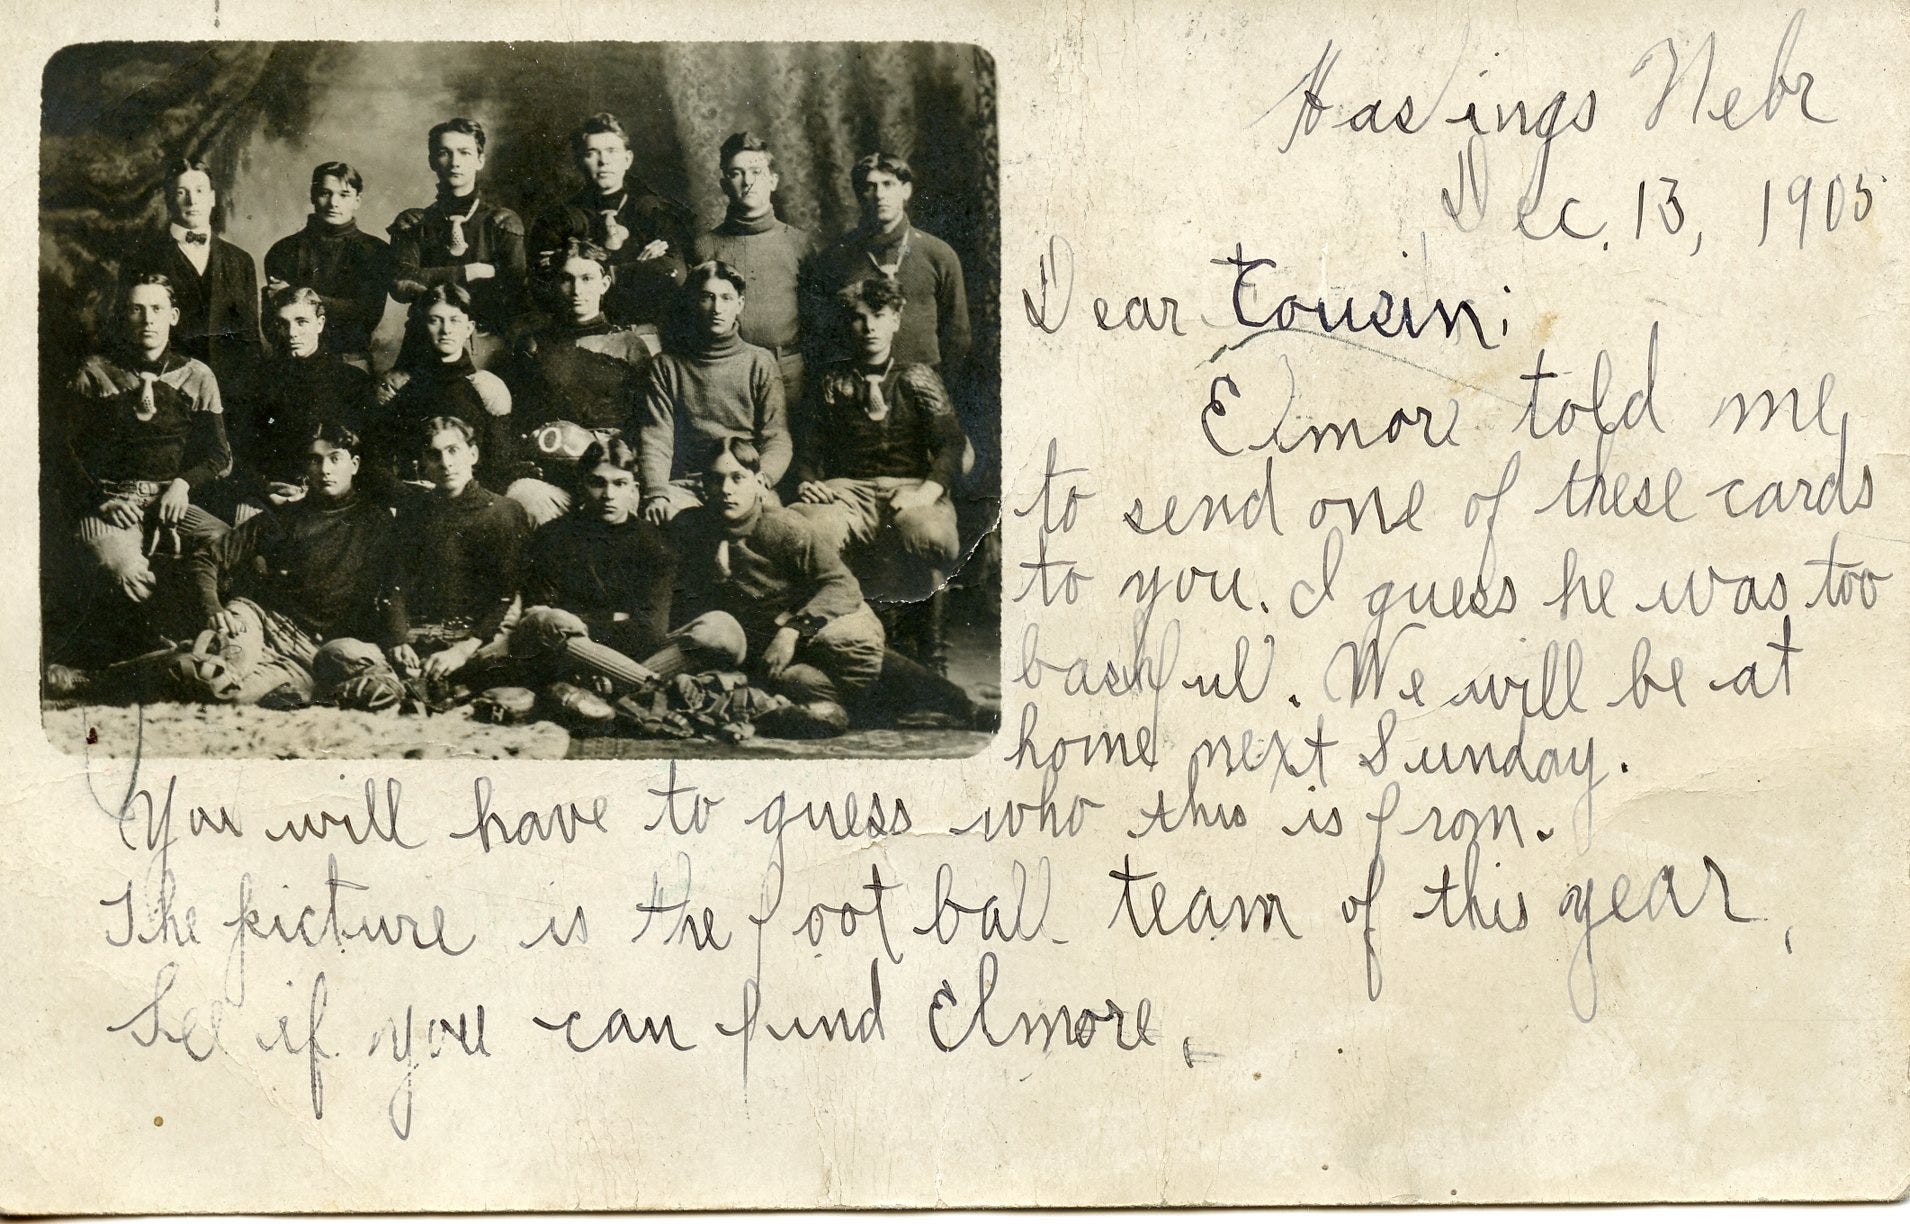 Hastings Nebr
Dec. 13, 1905
Dear Cousin:
Elmore told me
to send one of these cards
to you. I guess he was too
bashful. We will be at
home next Sunday.
You will have to guess who this is from.
The picture is the foot ball team of this year,
See if you can find Elmore.